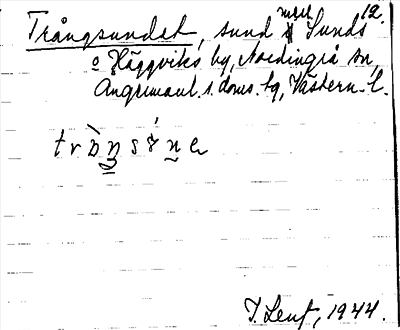 12.
Trångsundet, sund mell. Sunds
o Häggviks by, Nordingrå sn,
Ångermanl. s. doms. sg, Västern. l.
I. Lenf, 1944.